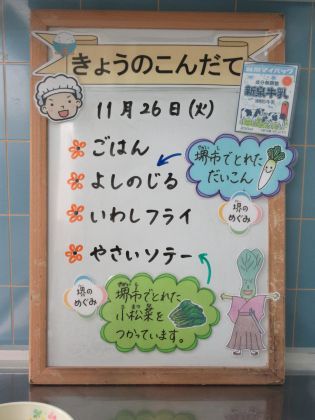 きょうのこんだて
11月26日(火)
ごはん
よしのじる
いわしフライ
やさいソテー
堺市でとれた
だいこん
堺の
めぐみ
堺の
めぐみ
堺市でとれた
小松菜を
つかっています。
新泉牛乳